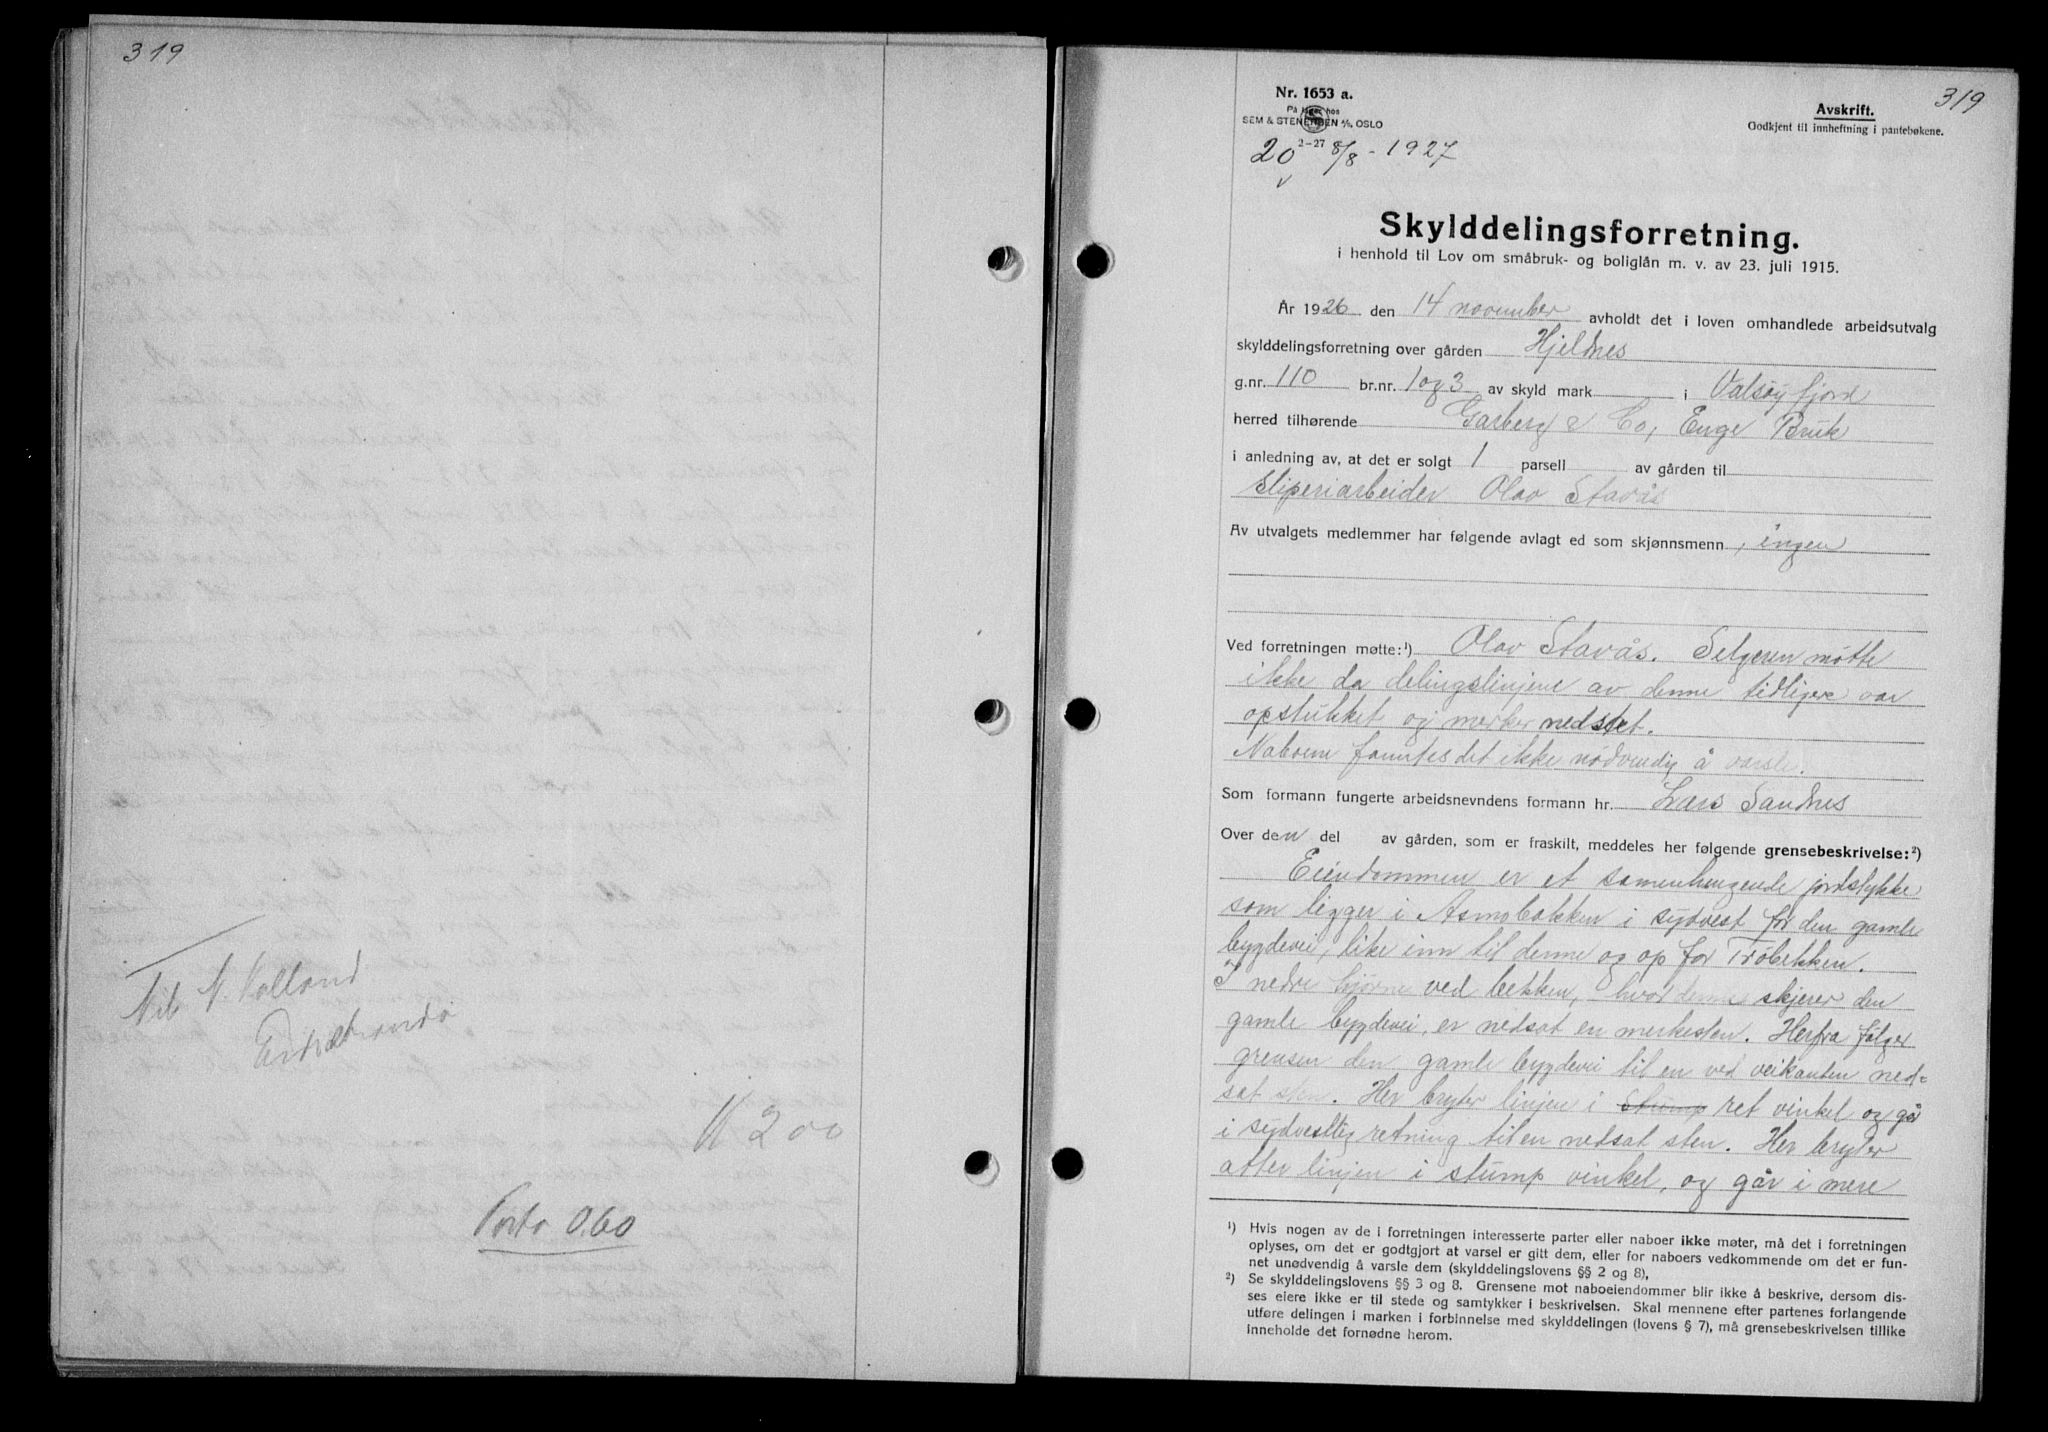 319
Nils N. Valland
K 2 00
Porto 0.60
319
Nr. 1653 a.
På lager hos
SEM & STENERSEN A/S, OSLO
2-27
20 8/8 - 1927
Avskrift.
Godkjent til innheftning i pantebøkene.
Skylddelingsforretning.
i henhold til Lov om småbruk- og boliglån m. v. av 23. juli 1915.
År 1926 den 14 november avholdt det i loven omhandlede arbeidsutvalg
skylddelingsforretning over gården Hjeldnes
g.nr. 110 br.nr. 1 og 3 av skyld mark i Valsøyfjord
herred tilhørende Garberg & Co, Enge Bruk
i anledning av, at det er solgt 1 parsell av gården til
Sliperiarbeider Olav Stavås
Av utvalgets medlemmer har følgende avlagt ed som skjønnsmenn, ingen
Ved forretningen møtte:¹) Olav Stavås. Selgeren møtte
ikke da delingslinjene av denne tidligere var
opstukket og merker nedsatt.
Naboene fantes det ikke nødvendig å varsle.
Som formann fungerte arbeidsnevndens formann hr. Lars Sandnes
Over den del av gården, som er fraskilt, meddeles her følgende grensebeskrivelse:²)
Eiendommen er et samenhengende jordstykke
som ligger i Asmobakken i sydvest for den gamle
bygdevei, like inn til denne og op for Trøbekken.
I nedre hjørne ved bekken, hvor denne skjerer den
gamle bygdevei, er nedsat en merkesten. Herfra følger
grensen den gamle bygdevei til en ved veikanten ned=
sat sten. Her bryter linjen i stump ret vinkel og går
i sydvestlig retning til en nedsat sten. Her bryter
atter linjen i stump vinkel, og går i mere
¹) Hvis nogen av de i forretningen interesserte parter eller naboer ikke møter, må det i forretningen
oplyses, om det er godtgjort at varsel er gitt dem, eller for naboers vedkommende om det er fun-
net unødvendig å varsle dem (skylddelingslovens §§ 2 og 8),
²) Se skylddelingslovens §§ 3 og 8. Grensene mot naboeiendommer blir ikke å beskrive, dersom dis-
ses eiere ikke er til stede og samtykker i beskrivelsen. Skal mennene efter partenes forlangende
utføre delingen i marken i forbinnelse med skylddelingen (lovens § 7), må grensebeskrivelsen tillike
inneholde det fornødne herom.